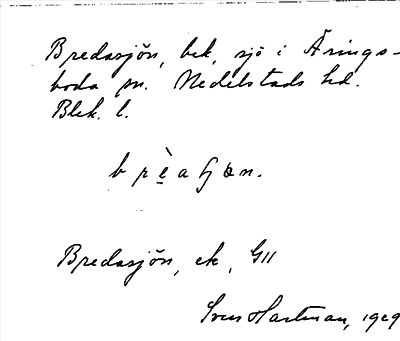 Bredasjön, bek, sjö i Årings-
boda sn. Medelstads hd.
Blek. l.
Bredasjön, ek, G11
Sven Hartman, 1929